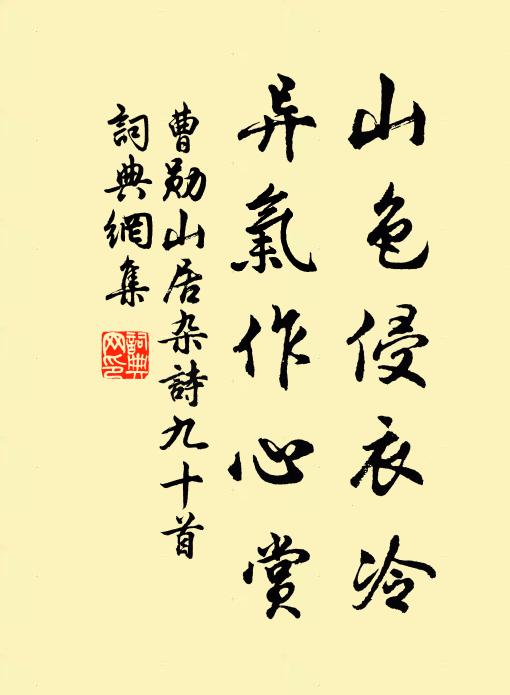 山色侵衣冷
异氣作心賞
曹勋山居杂詩九十首
詞典網集
詞典
网印